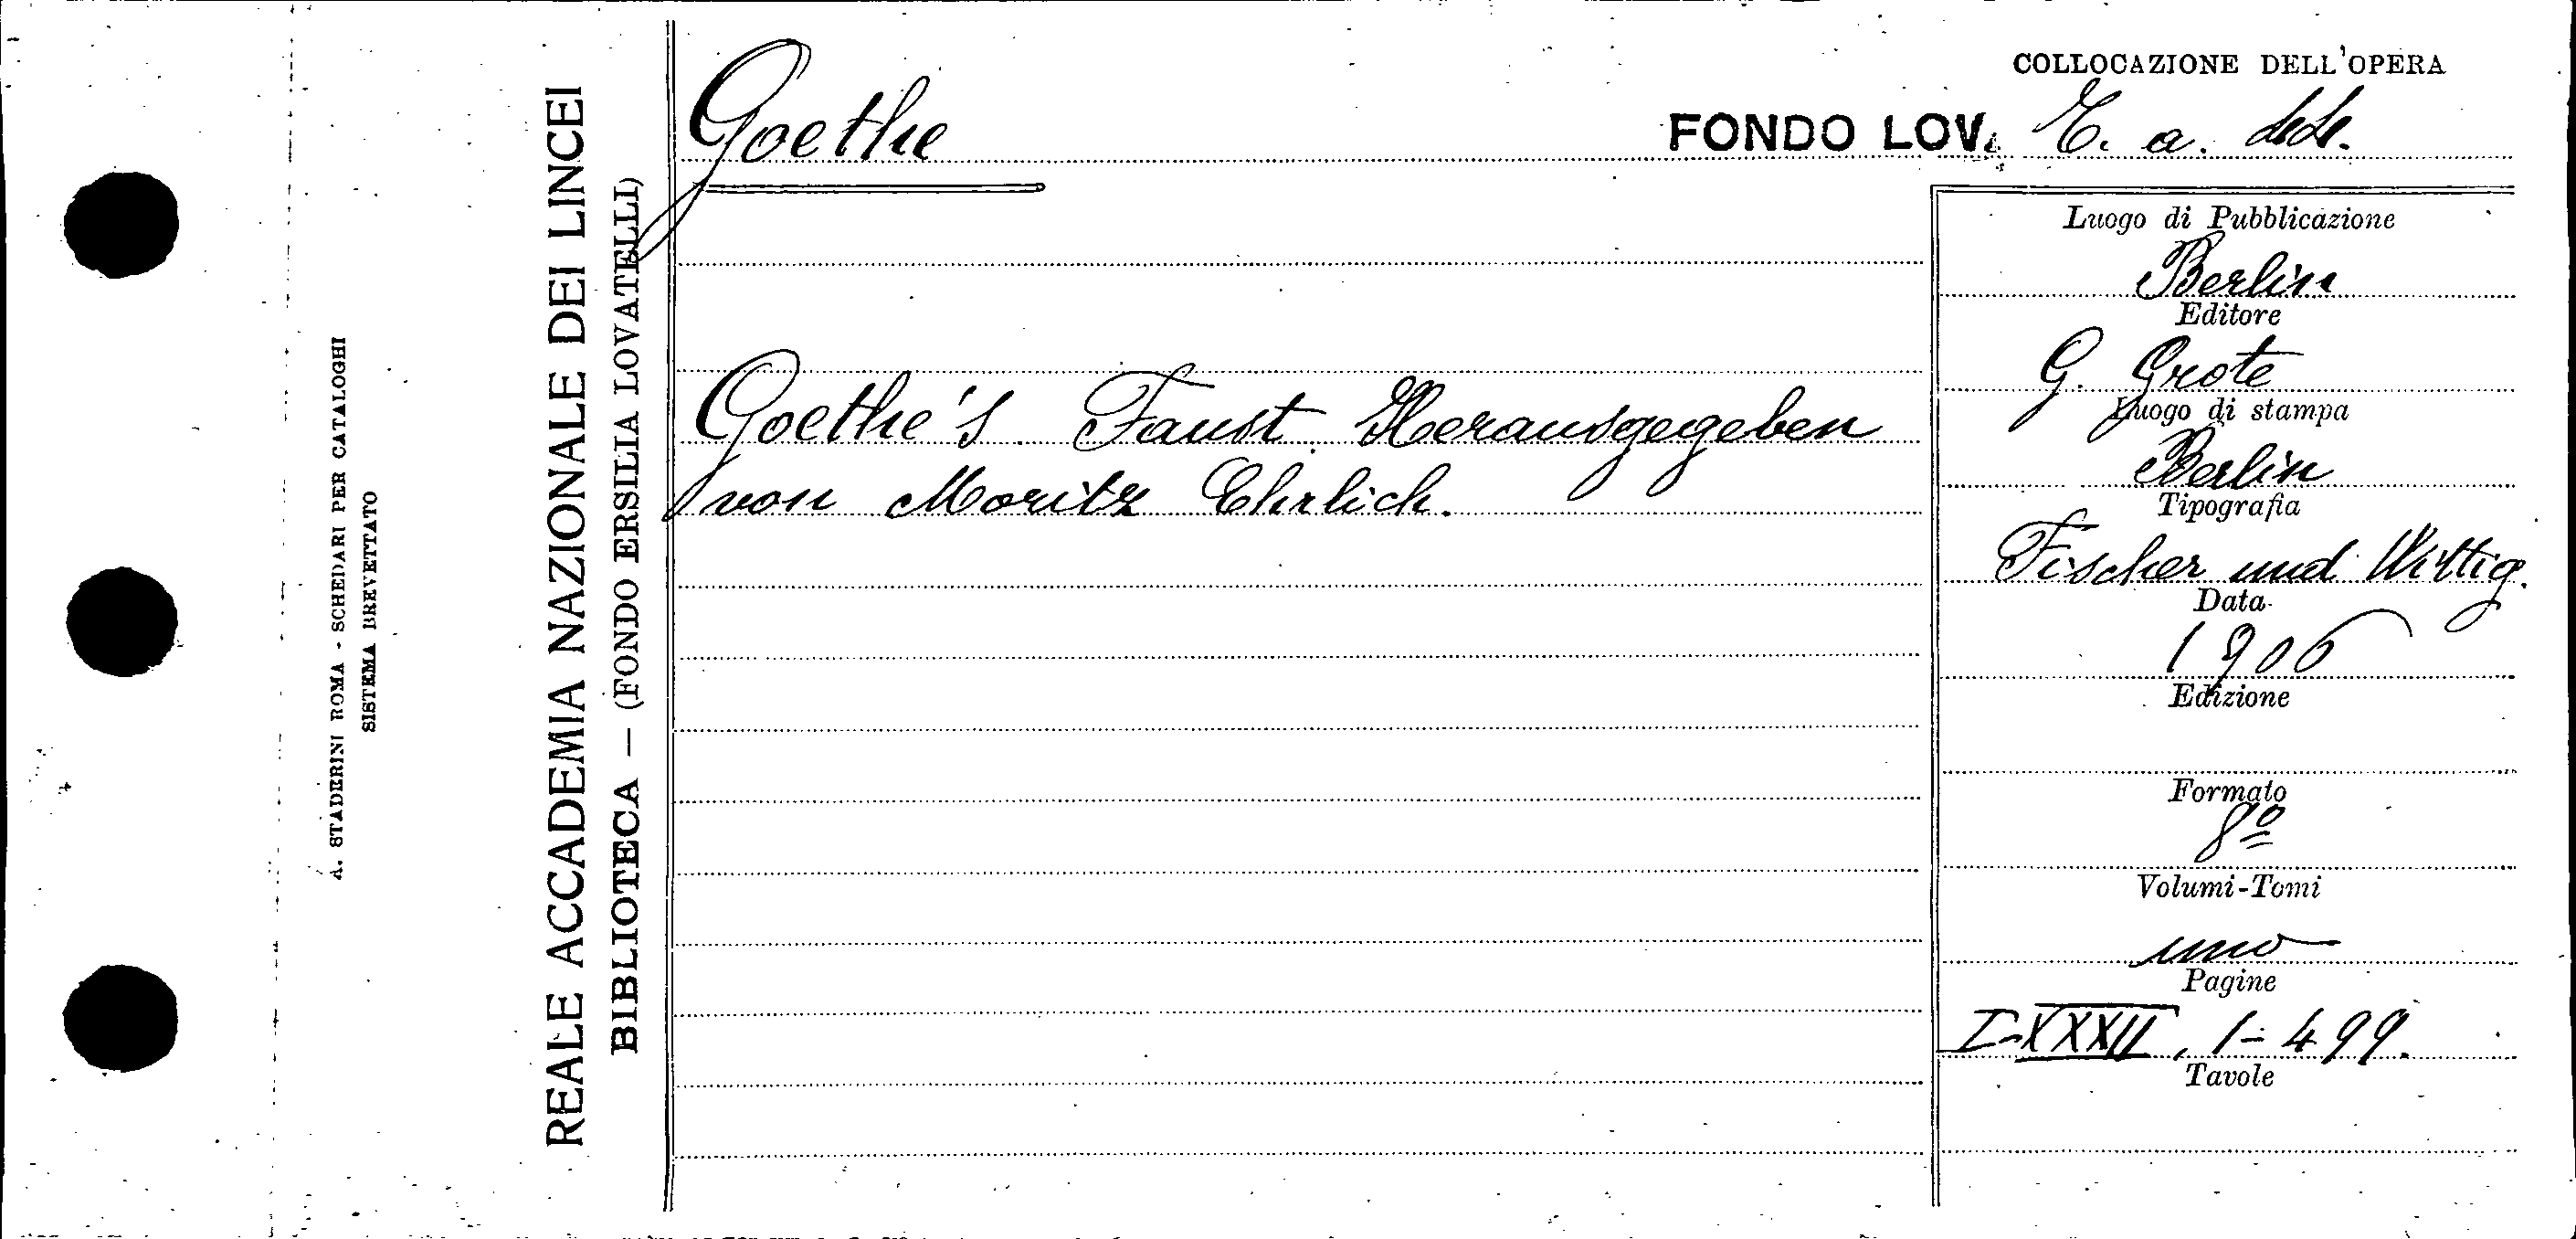 A. STADERINI ROMA - SCHEDARI PER CATALOGHI
SISTEMA BREVETTATO
REALE ACCADEMIA NAZIONALE DEI LINCEI
BIBLIOTECA — (FONDO ERSILIA LOVATELLI)
Goethe
Goethe's Faust. Herausgegeben
von Moritz Ehrlich.
COLLOCAZIONE DELL'OPERA
FONDO LOV. a.
Luogo di Pubblicazione
Berlin
Editore
G. Grote
Luogo di stampa
Berlin
Tipografia
Fischer und Wittig.
Data
1906
Edizione
Formato
8º
Volumi-Tomi
uno
Pagine
I-XXXII, 1-499.
Tavole